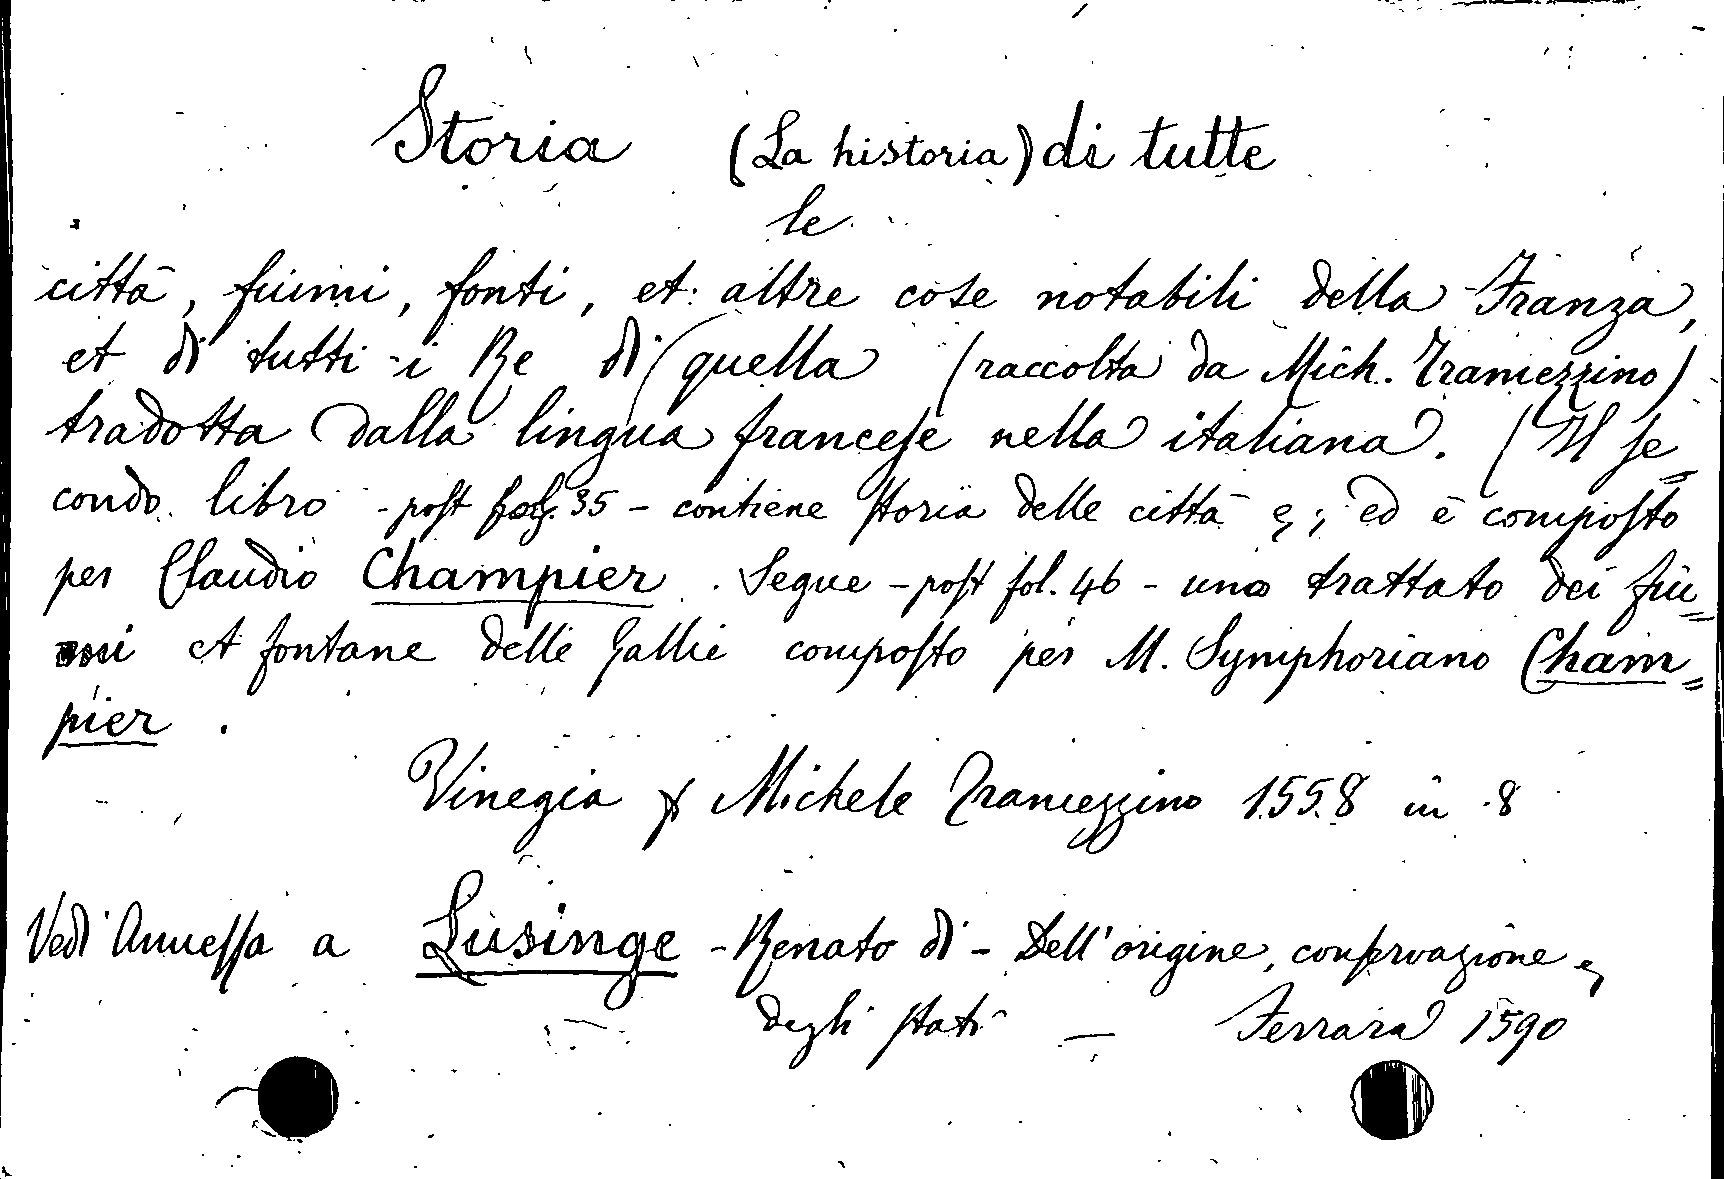 Storia (La historia) di tutte
le
città, fiumi, fonti, et altre cose notabili della Franza,
et di tutti i Re di quella (raccolta da Mich. Tramezzino)
tradotta dalla lingua francese nella italiana. (Il se-
condo libro - post fol. 35 - contiene storia delle città &; ed è composto
per Claudio Champier. Segue - post fol. 46 - uno trattato dei fiu=
mi et fontane delle Gallie composto per M. Symphoriano Cham=
pier.
Vinegia p Michele Tramezzino 1558 in 8
Vedi Annessa a Lusinge - Renato di - Dell'origine, conservazione &
degli stati — Ferrara 1590